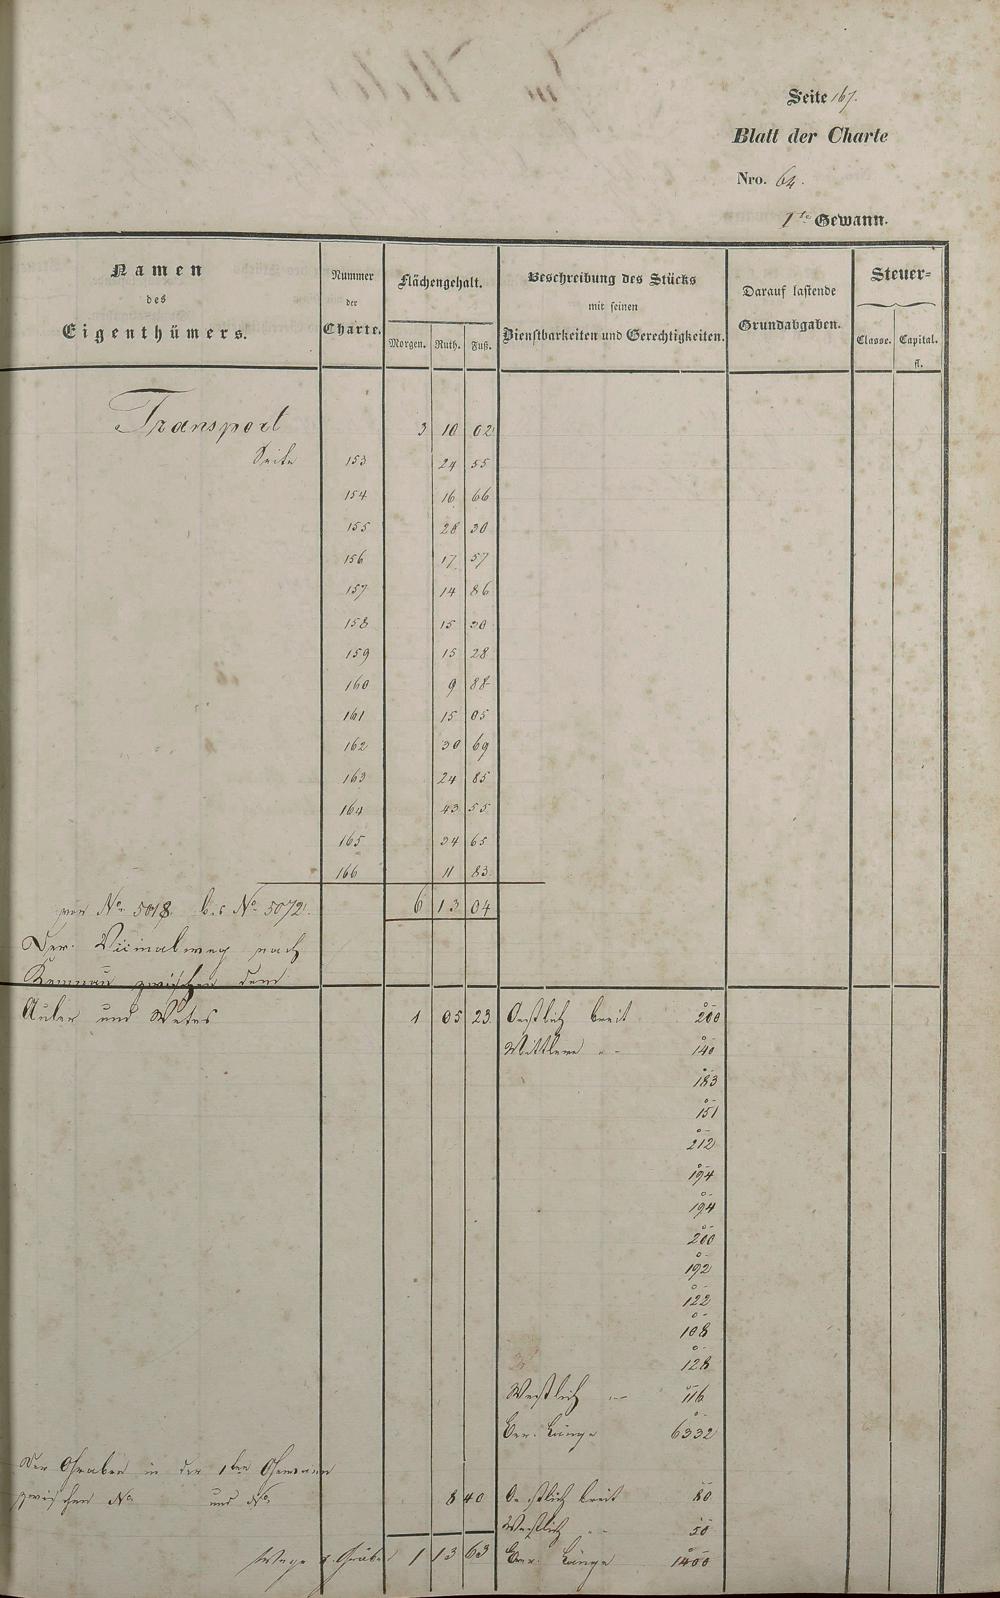 Seite 167.
Blatt der Charte
Nro. 64.
1te Gewann.
Namen des Eigenthümers.
Nummer der Charte.
Flächengehalt.
Morgen. Ruth. Fuß.
Beschreibung des Stücks mit seinen Dienstbarkeiten und Gerechtigkeiten.
Darauf lastende Grundabgaben.
Steuer=
Classe. Capital. fl.
Transport 3 10 02
Seite 153 24 55
154 16 66
155 28 30
156 17 57
157 14 86
158 15 30
159 15 28
160 9 88
161 15 05
162 30 69
163 24 85
164 43 55
165 34 65
166 11 83
von No. 5018 bis No. 5072. 6 13 04
Der Vicinalweg nach
Kemnau zwischen dem
Auler und Wetes 1 05 23 Oestlich breit 200
Mittlere " 140
183
151
212
194
194
200
192
122
108
128
Westlich " 116
Ber. Länge 6332
Der Graben in der 1ten Gewann
zwischen No. und No. 8 40 Oestlich breit 80
Westlich " 50
Wege & Gräben 1 13 63 Ber. Länge 1400